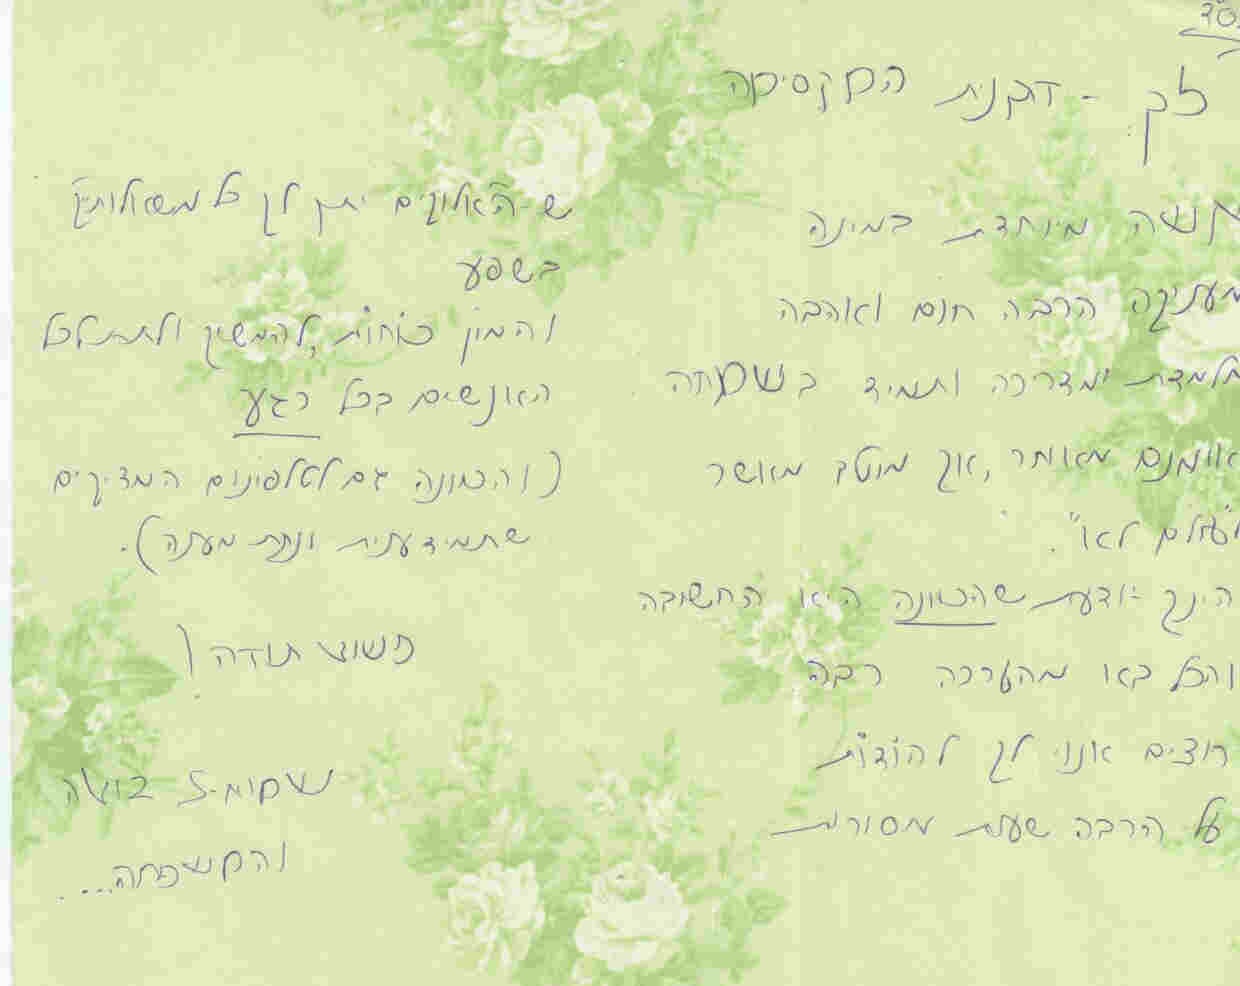 בס"ד
לך - דקנית המקסימה
אשה מיוחדת במינה
מעניקה הרבה חום ואהבה
מלמדת ומדריכה ותמיד בשמחה
אומנם מאוחר, אך מוטב מאוחר
לעולם לא".
הינך יודעת שהכוונה היא החשובה
והכל בא מהערכה רבה
רוצים אנו לך להודות
על הרבה שעות מסורות
ש-האלוקים יתן לך כל משאלותיך
בשפע
והמון כוחות להמשיך ולתת לכל
האנשים בכל רגע
(והכוונה גם לטלפונים המדויקים
שתמיד ענית ונתת מענה).
פשוט תודה!
והמשפחה...